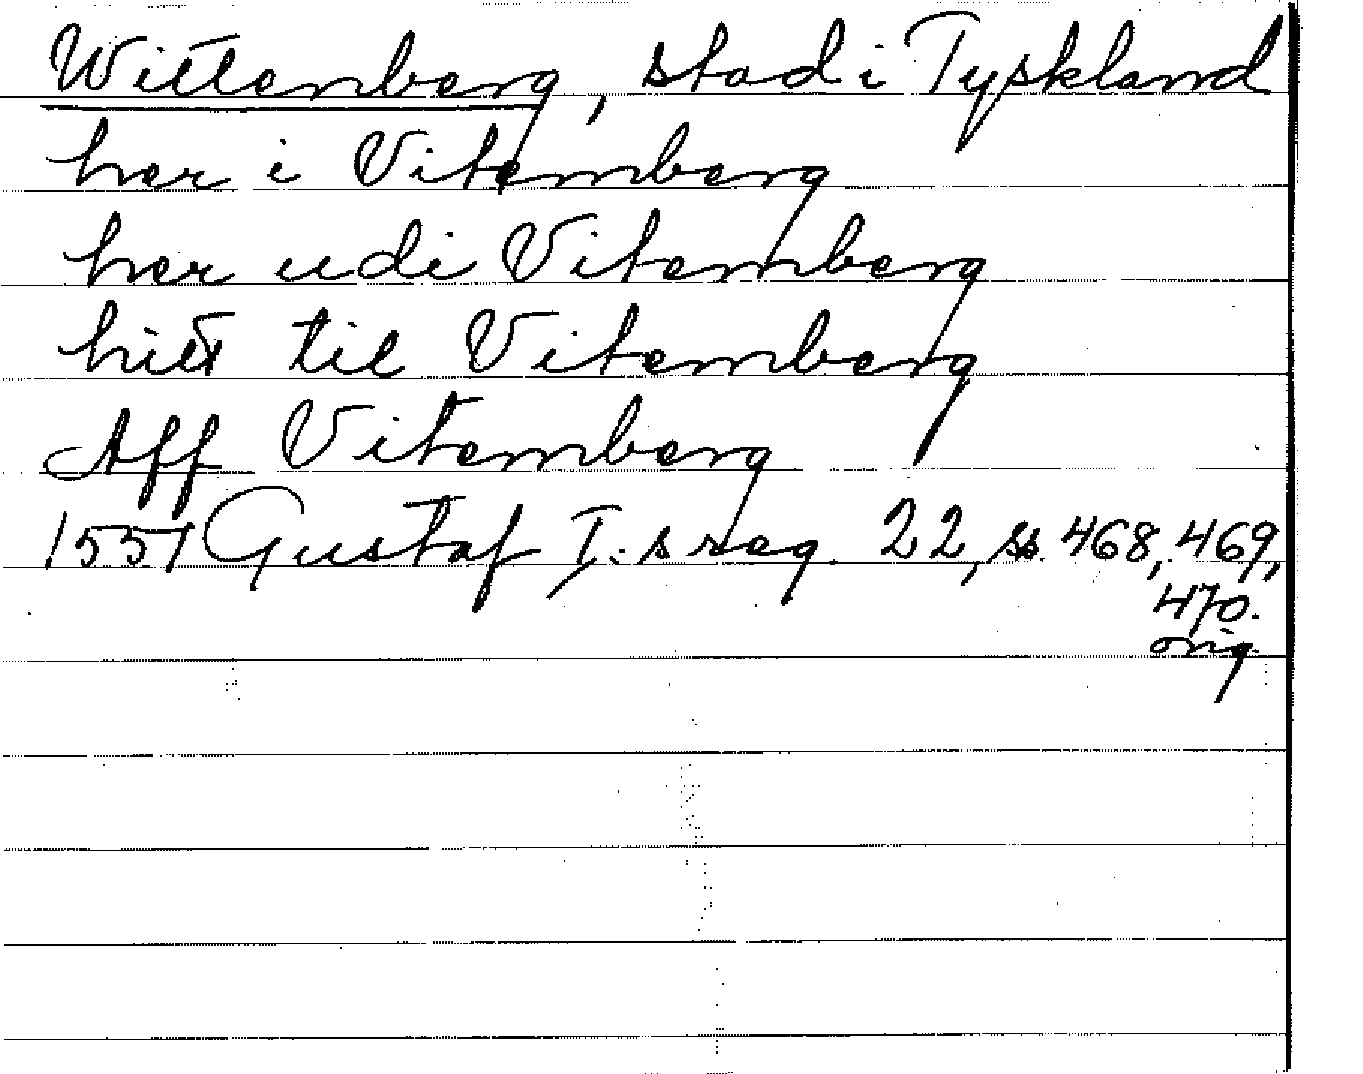 Wittenberg, stad i Tyskland
her i Vitemberg
her udi Vitemberg
hiitt til Vitemberg
Aff Vitemberg
1551 Gustaf I:s reg. 22, ss. 468, 469,
470.
orig